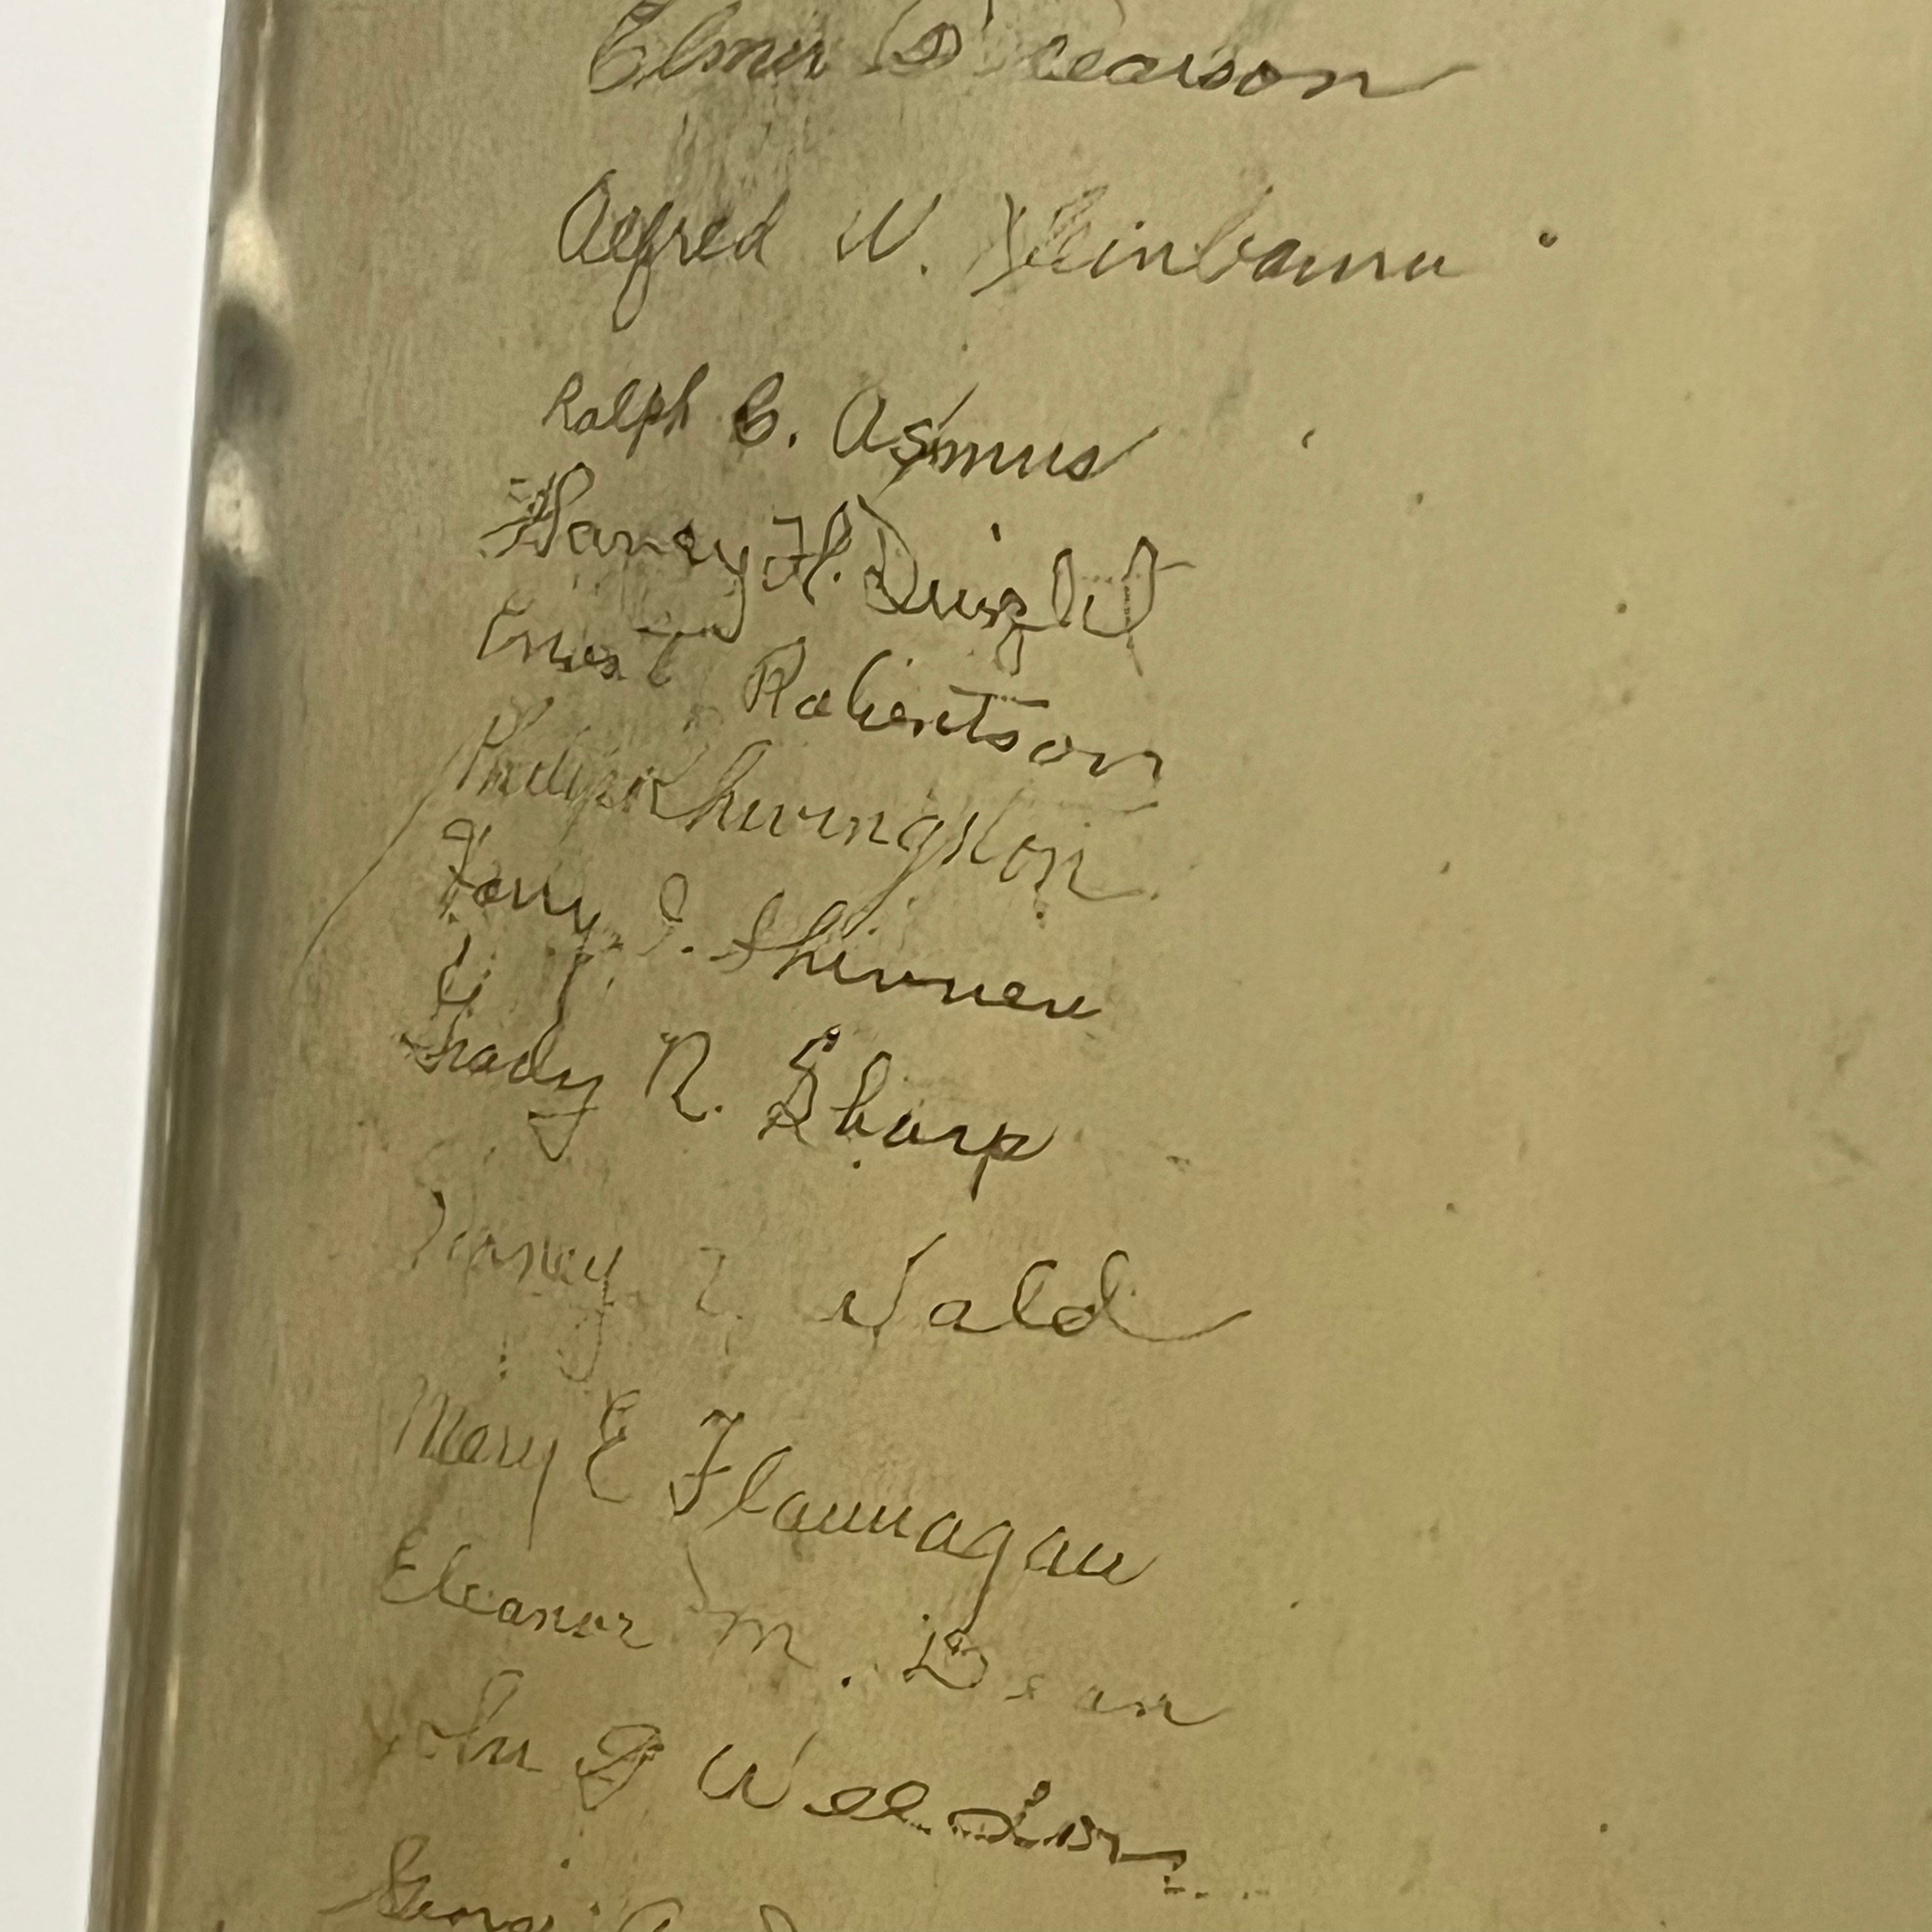 Elmer Pearson
Alfred W. Kleinbaum
Ralph C. Asmus
Harvey H. Dwight
Ernest Robertson
Philip K Livingston
Harry J. Skinner
Grady R. Sharp
Wald
Mary E Flannagan
Eleanor M. Dean
John J